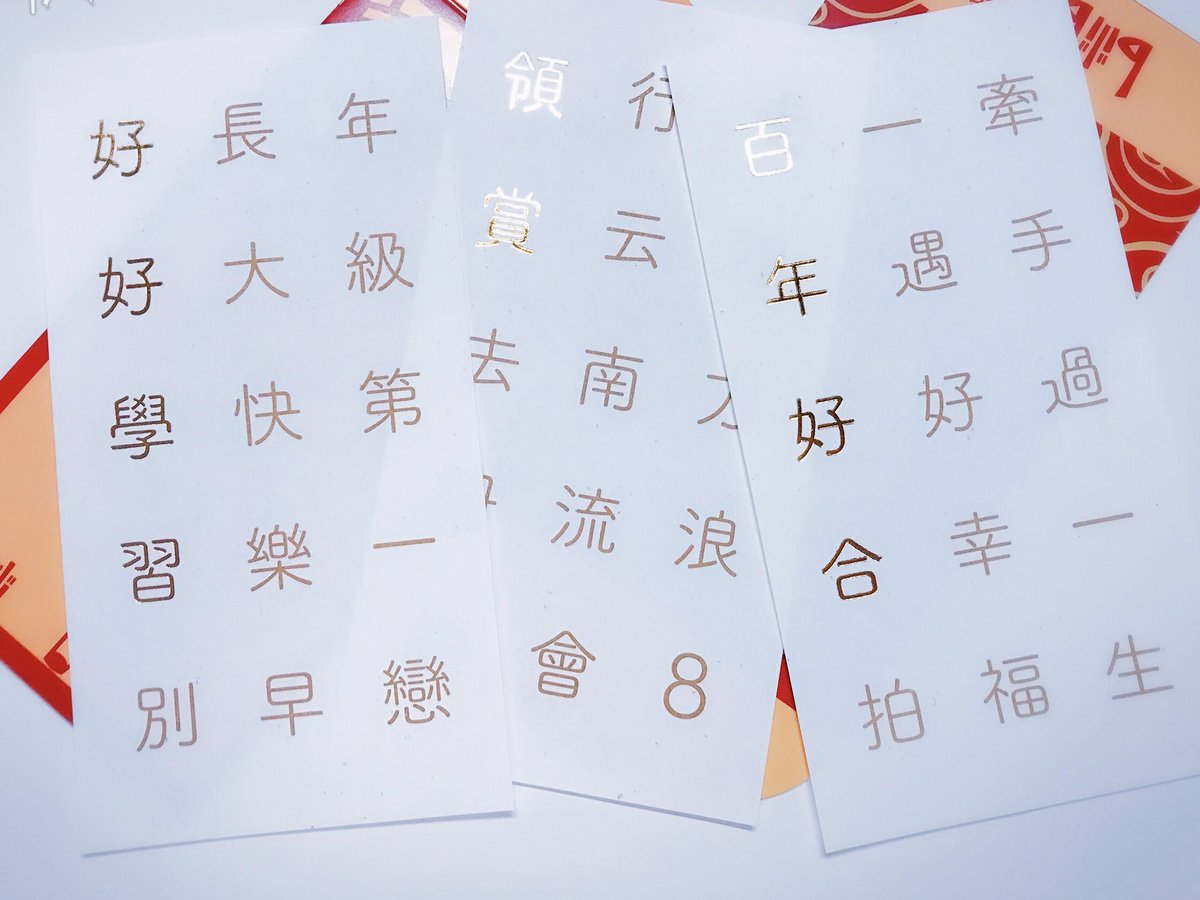 好好學習別
長大快樂早
年級第一戀
領賞去
行云南流會
浪8
百年好合拍
一遇好幸福
牽手過一生